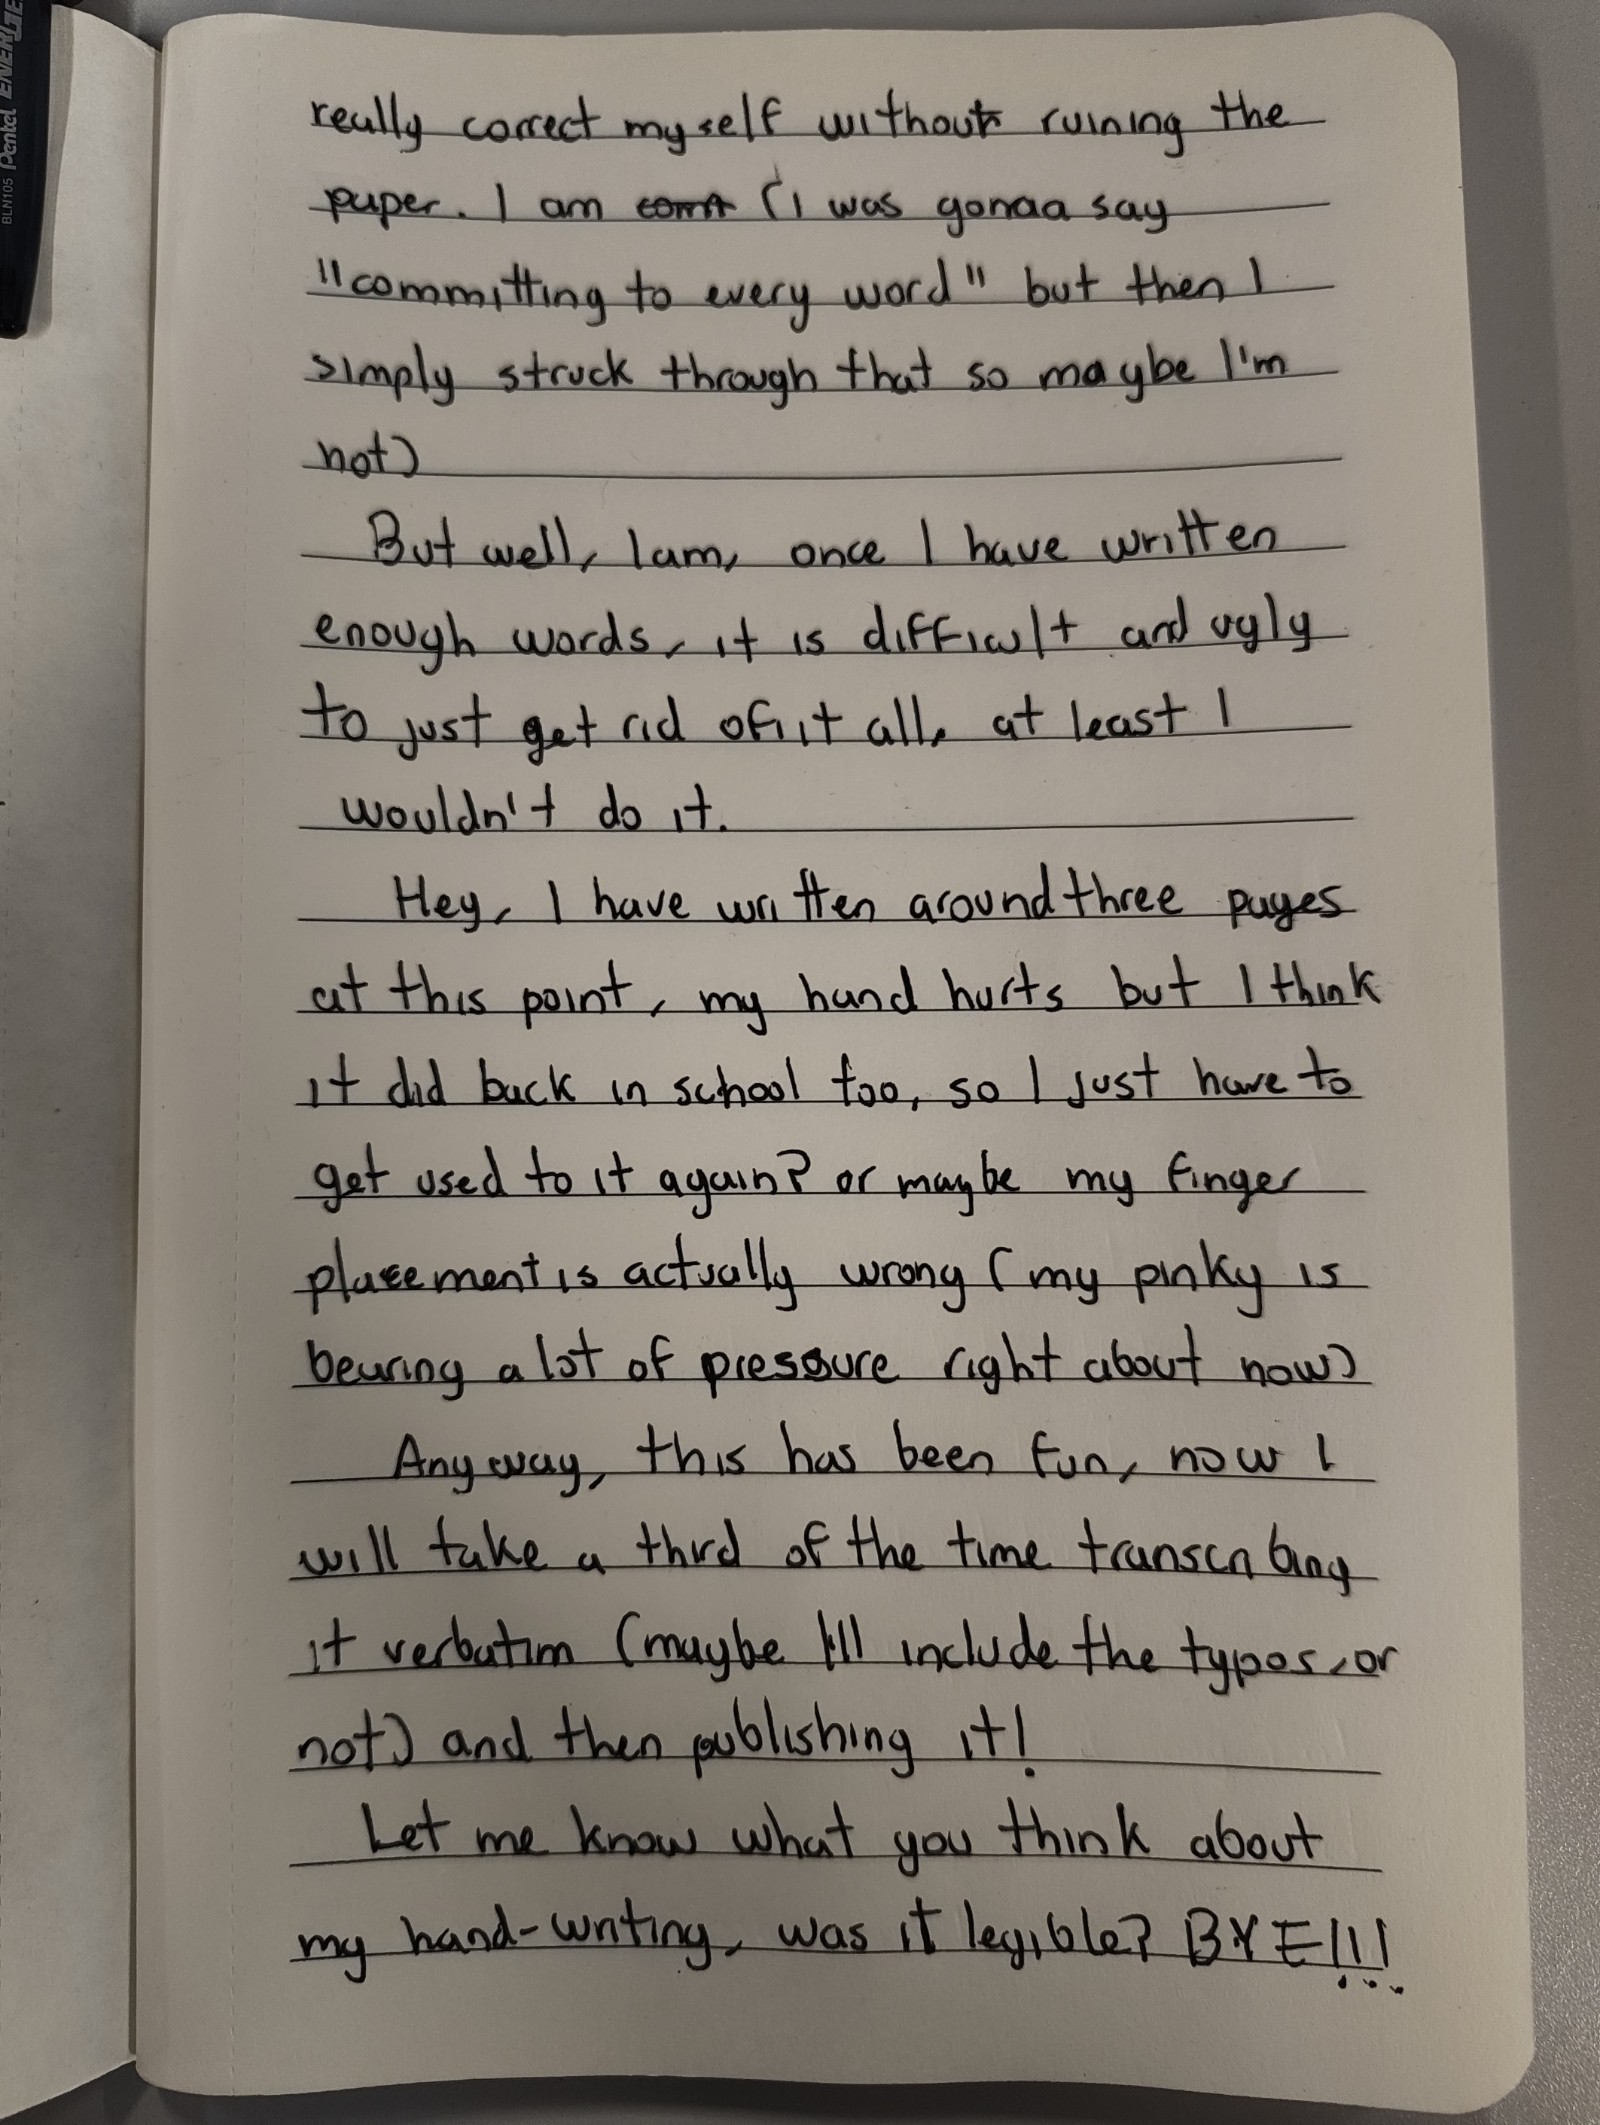 BLN105 Pentel ENERGE
really correct myself without ruining the
paper. I am comit (I was gonaa say
"committing to every word" but then I
simply struck through that so maybe I'm
not)
But well, I am, once I have written
enough words, it is difficult and ugly
to just get rid of it all, at least I
wouldn't do it.
Hey, I have written around three pages
at this point, my hand hurts but I think
it did back in school too, so I just have to
get used to it again? or maybe my finger
placement is actually wrong (my pinky is
bearing a lot of pressure right about now)
Anyway, this has been fun, now I
will take a third of the time transcribing
it verbatim (maybe I'll include the typos, or
not) and then publishing it!
Let me know what you think about
my hand-writing, was it legible? BYE!!!